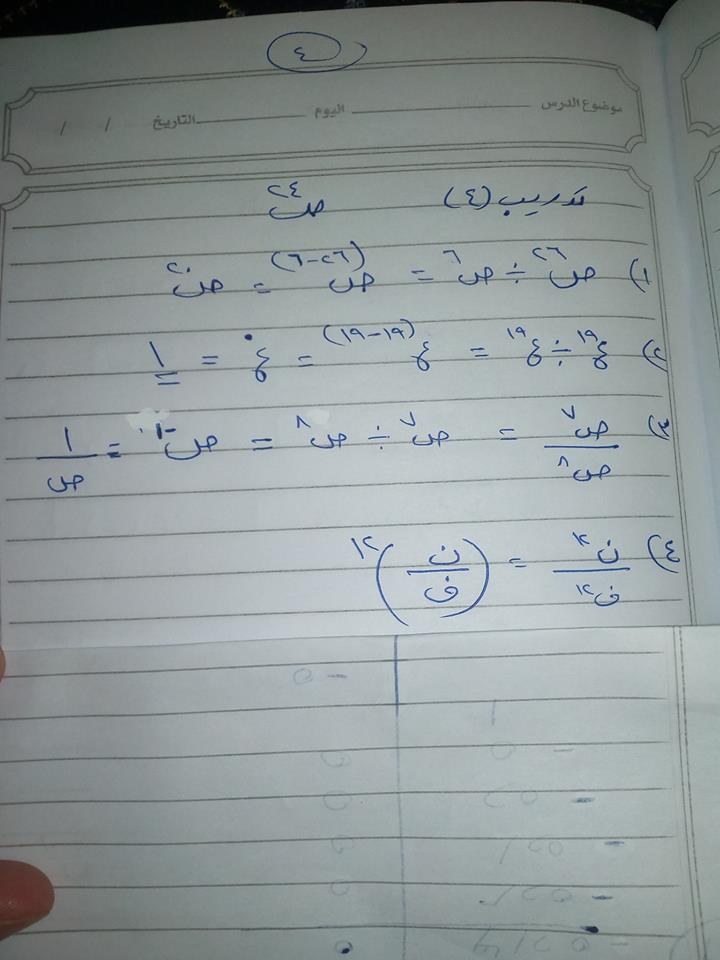 ٤
موضوع الدرس اليوم التاريخ / /
تدريب (٤) ص٢٤
١) ص^٢٦ ÷ ص^٦ = ص^(٢٦-٦) = ص^٢٠
٢) ع^١٩ ÷ ع^١٩ = ع^(١٩-١٩) = ع^٠ = ١
٣) ص^٧/ص^٨ = ص^٧ ÷ ص^٨ = ص^-١ = ١/ص
٤) ن^١٢/ف^١٢ = (ن/ف)^١٢